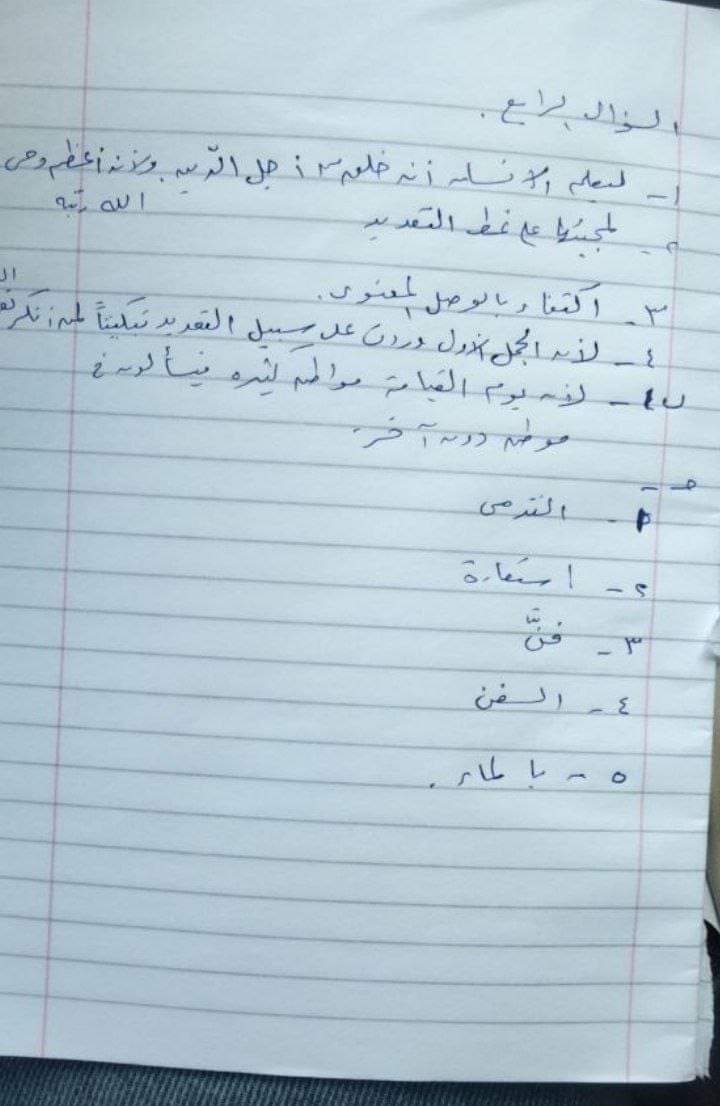 السؤال الرابع .
١- ليعلم الإنسان أنه خلقه من أجل الدين ولأنه أعظم وحي
الله رتبة
٢- لمجيئها على نمط التعديد
٣- اكتفاء بالوصل المعنوي .
٤- لأن الجمل الأول وردت على سبيل التعديد تبكيتاً لمن أنكر
لأن يوم القيامة مواطن كثيره فيسألون في
موطن دون آخر .
حـ -
- القدمي
٢- استعارة
٣- فنّ
٤- السفن
٥- بالماء .